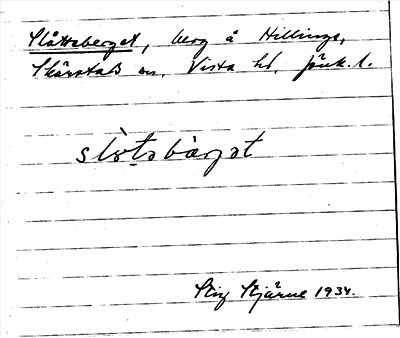 Slåttsberget, berg å Hillinge,
Skärstads sn, Vista hd, Jönk. l.
slòtsbàrjət
Stig Stjärne 1934.